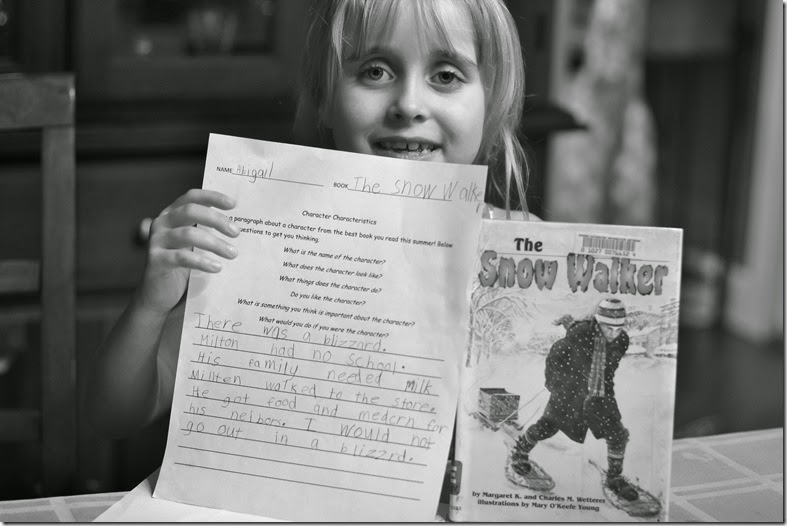 NAME Abigail BOOK The Snow Walke
Character Characteristics
a paragraph about a character from the best book you read this summer! Below
uestions to get you thinking.
What is the name of the character?
What does the character look like?
What things does the character do?
Do you like the character?
What is something you think is important about the character?
What would you do if you were the character?
There was a blizzard.
Milton had no school.
His family needed milk
Millten walked to the store.
He got food and medcrn for
his neibors. I would not
go out in a blizzrd.
The
Snow Walker
by Margaret K. and Charles M. Wetterer
illustrations by Mary O'Keefe Young